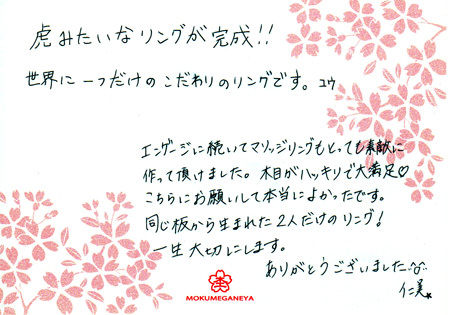 虎みたいなリングが完成!!
世界に一つだけのこだわりのリングです。ユウ
エンゲージに続いてマリッジリングもとっても素敵に
作って頂けました。木目がハッキリで大満足♡
こちらにお願いして本当によかったです。
同じ板から生まれた2人だけのリング!
一生大切にします。
ありがとうございました
仁美
MOKUMEGANEYA